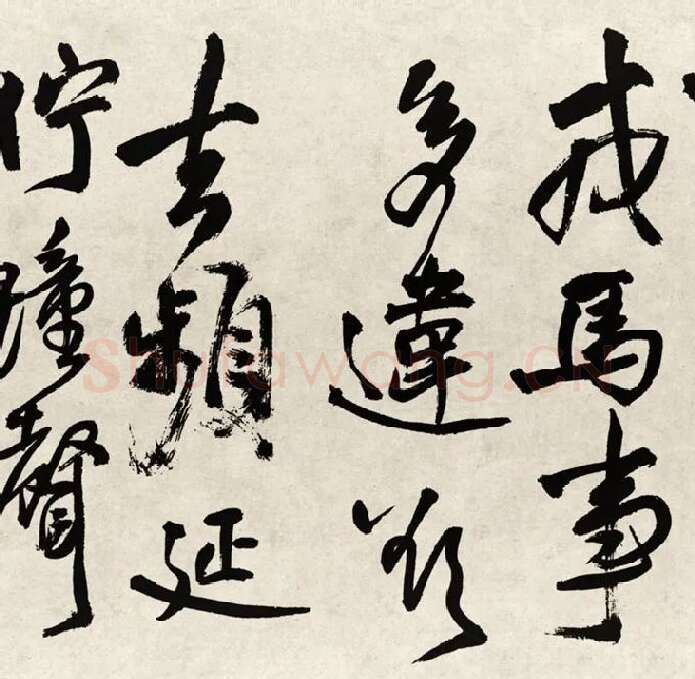 戎馬事
多違欲
去頻延
佇鐘聲
shufawang.CN